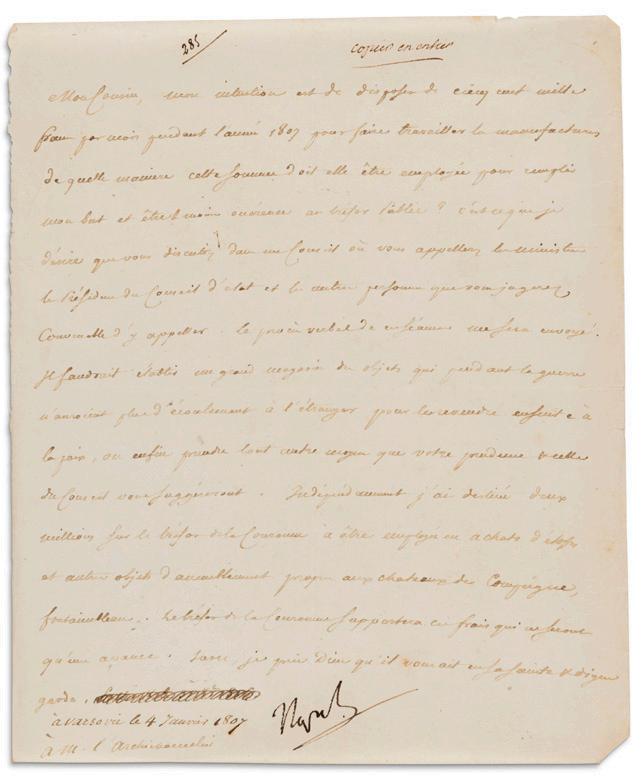 285
copier en entier
Mon Cousin, mon intention est de disposer de cinq cent mille
francs par mois pendant l'année 1807 pour faire travailler les manufactures
de quelle maniere cette somme doit elle être employée pour remplir
mon but et être moins onéreuse au trésor public ? c'est ce que je
désire que vous discutiez dans un Conseil où vous appellerez les ministres
le Président du Conseil d'état et les autres personnes que vous jugerez
Convenable d'y appeller. le procès verbal de ces séances me sera envoyé.
Il faudrait établir un grand magasin des objets qui pendant la guerre
n'auroient plus d'écoulement à l'étranger pour les revendre ensuite à
la paix, ou enfin prendre tout autre moyen que votre prudence & celle
du Conseil vous suggéreront. Indépendamment j'ai destiné deux
millions sur le trésor de la Couronne à être employés en achats d'étoffes
et autres objets d'ameublement propres aux chateaux de Compiégne,
fontainebleau. le trésor de la Couronne supportera ces frais qui ne seront
qu'une avance. Sur ce, je prie Dieu qu'il vous ait en sa sainte & digne
garde.
à varsovie le 4 Janvier 1807
à M. l'Archichancelier